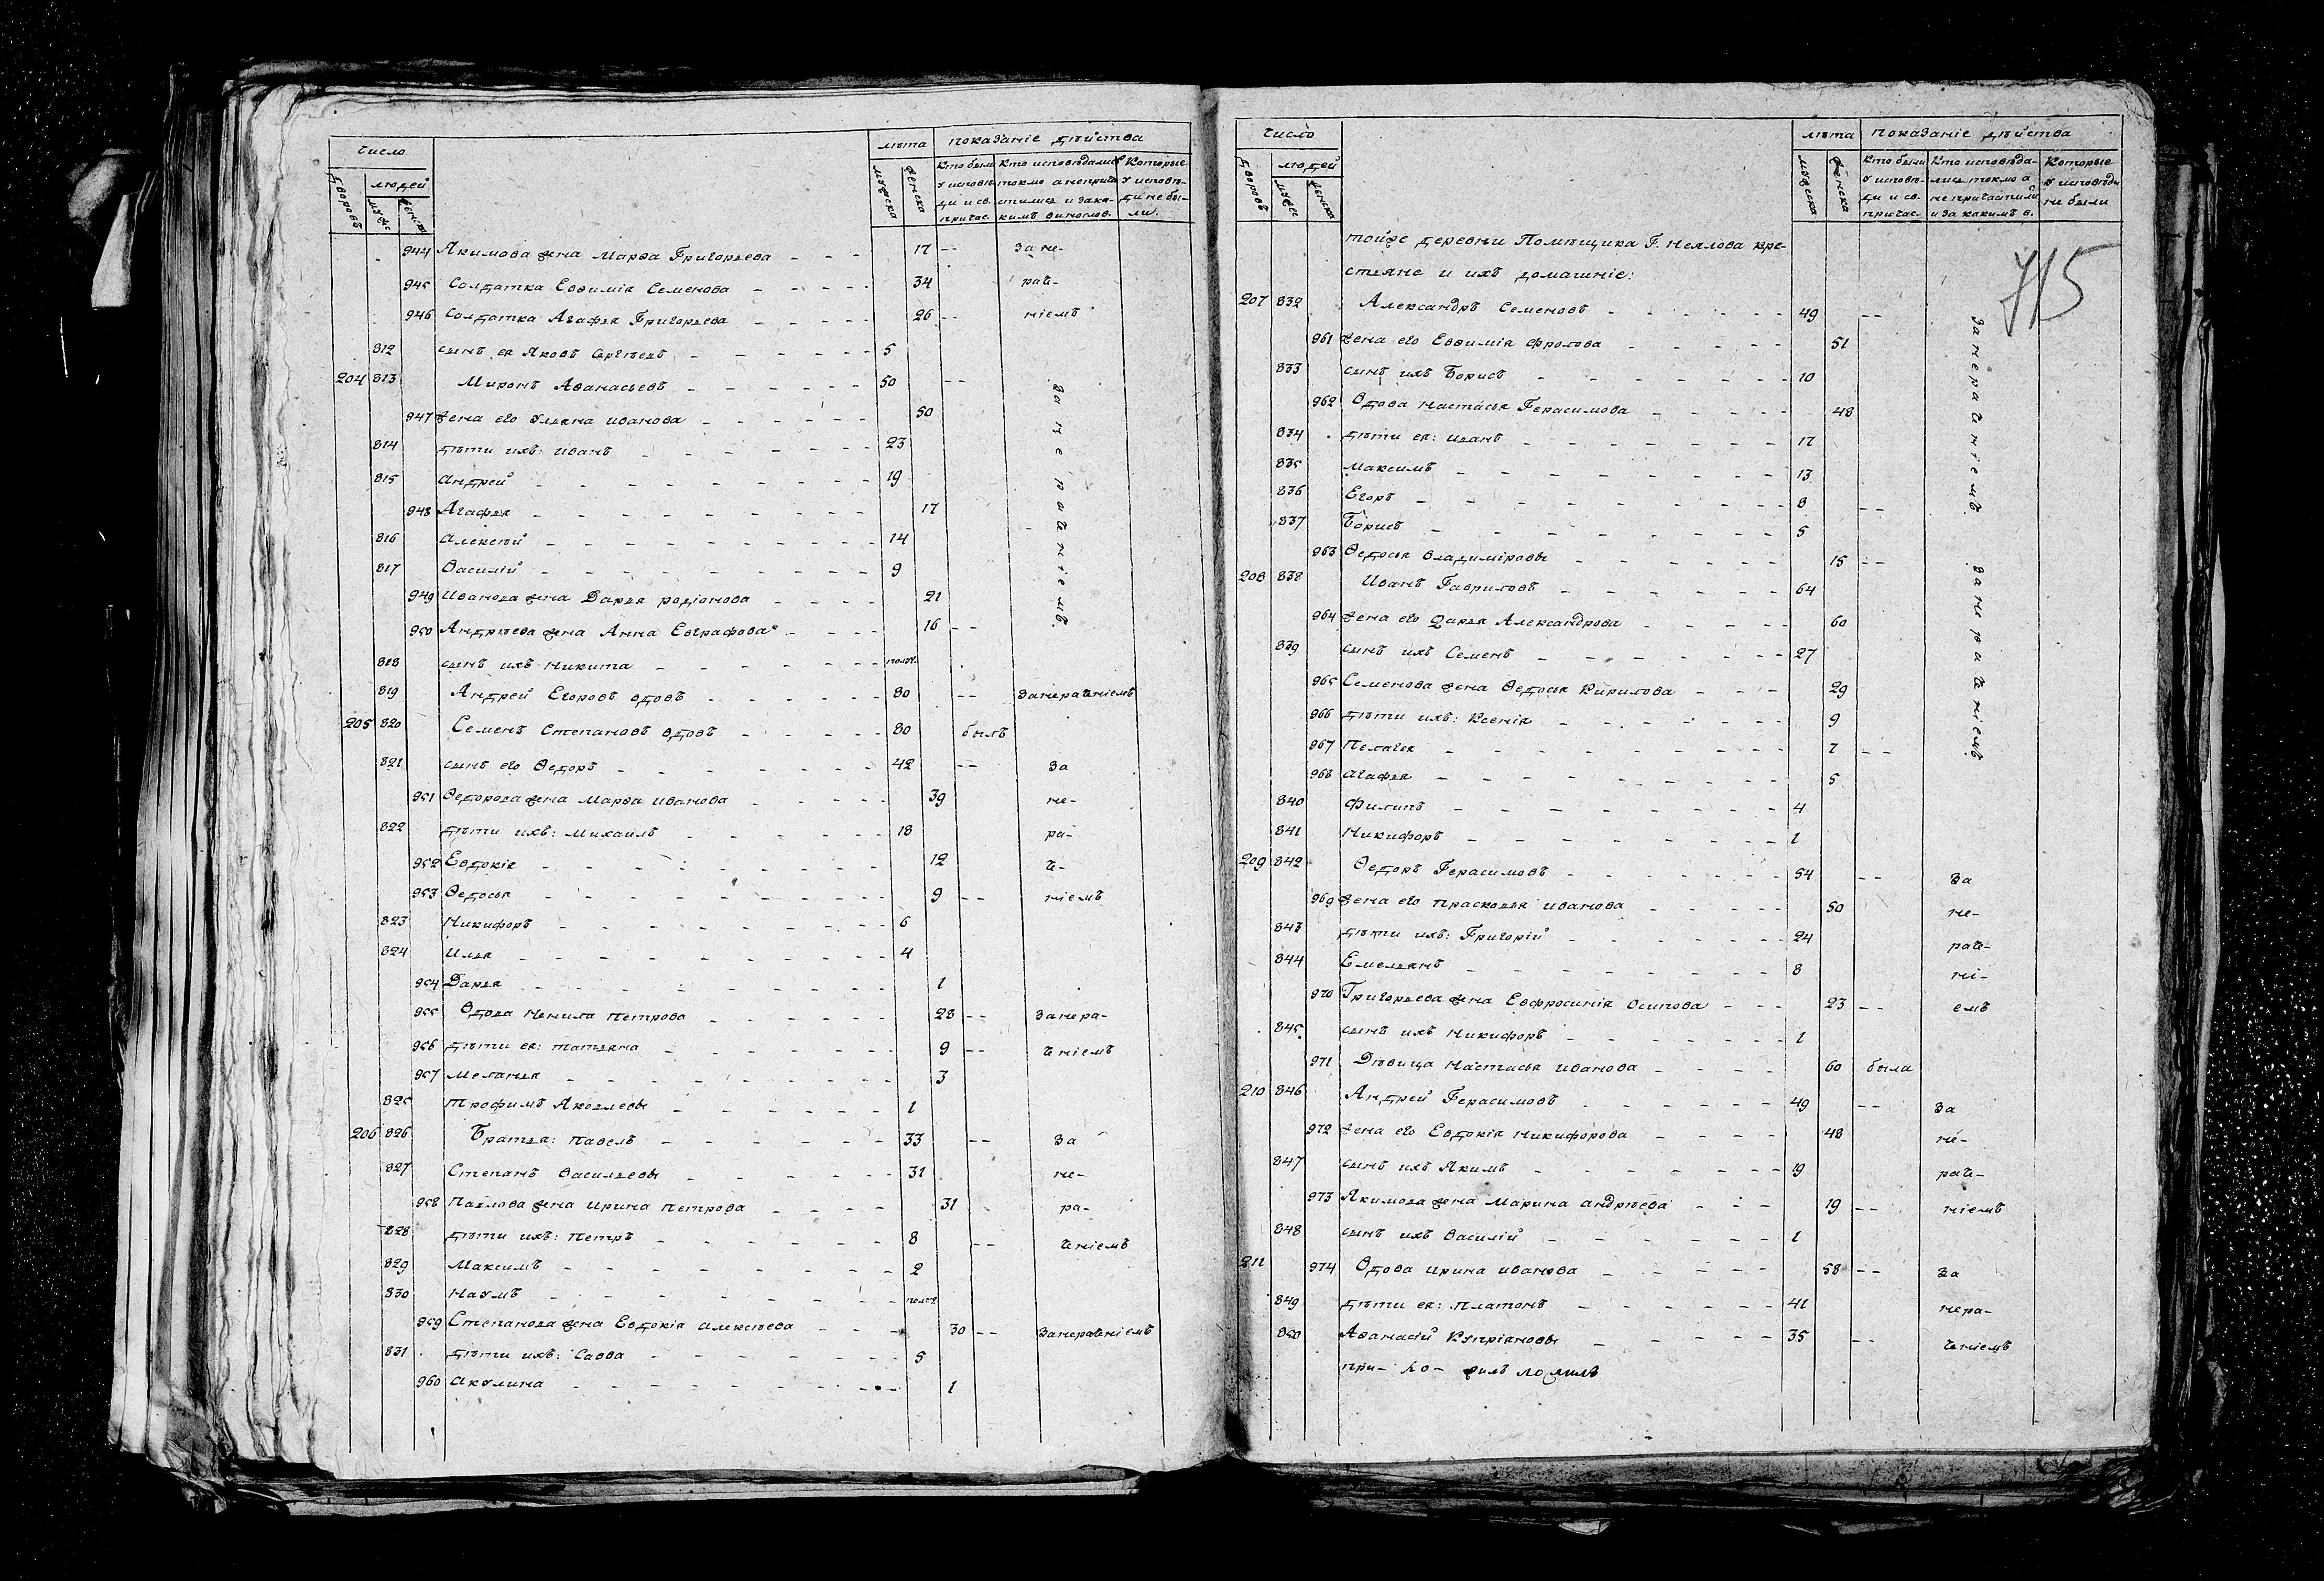 число
лѣта показаніе дѣйства
дворовъ людей мужеска женска Кто были у исповѣди и св. причас. Кто исповѣдалися токмо а не причастились и за какимъ винослов. Которые у исповѣди не были.
муж женск
944 Якимова жена Марѳа Григорьева 17 -- За не-
945 Солдатка Евѳимія Семенова 34 рач-
946 Солдатка Агафья Григорьева 26 -- ніемъ
812 сынъ ея Яковъ Сергѣевъ 5
204 813 Миронъ Аѳанасьевъ 50 -- За нераченіемъ
947 жена его Ульяна Иванова 50
814 дѣти ихъ: Иванъ 23
815 Андрей 19
948 Агафья 17
816 Алексѣй 14
817 Василій 9
949 Иванова жена Дарья Родіонова 21
950 Андрѣева жена Анна Евграфова 16 --
818 сынъ ихъ Никита полг.
819 Андрей Егоровъ вдовъ 80 -- Занераченіемъ
205 820 Семенъ Степановъ вдовъ 80 былъ
821 сынъ его Ѳедоръ 42 -- За
951 Ѳедорова жена Марѳа Иванова 39 не-
822 дѣти ихъ: Михаилъ 18 ра-
952 Евдокія 12 ч-
953 Ѳедосья 9 -- ніемъ
823 Никифоръ 6
824 Илья 4
954 Дарья 1
955 Вдова Ненила Петрова 28 -- Занера-
956 дѣти ея: Татьяна 9 -- чніемъ
957 Меланья 3
825 Трофимъ Яковлевы 1
206 826 Братья: Павелъ 33 -- За
827 Степанъ Васильевы 31 не-
958 Павлова жена Ирина Петрова 31 ра-
828 дѣти ихъ: Петръ 8 -- чніемъ
829 Максимъ 2
830 Наумъ полг.
959 Степанова жена Евдокія Алексѣева 30 -- Занерачніемъ
831 дѣти ихъ: Савва 5
960 Акулина 1
число
лѣта показаніе дѣйства
дворовъ людей мужеска женска Кто были у исповѣди и св. причас. Кто исповѣдались токмо а не причастились и за какимъ в. Которые у исповѣди не были
муже женска
715
тойже деревни Помѣщика Г. Неялова кре-
стьяне и ихъ домашніе:
207 832 Александръ Семеновъ 49 -- Занераченіемъ
961 жена его Евѳимія Фролова 51
833 сынъ ихъ Борисъ 10
962 Вдова Настасья Герасимова 48
834 дѣти ея: Иванъ 17
835 Максимъ 13
836 Егоръ 8 --
837 Борисъ 5
963 Ѳедосья Владиміровы 15 --
208 838 Иванъ Гавриловъ 64 Занераченіемъ
964 жена его Дарья Александрова 60
839 сынъ ихъ Семенъ 27
965 Семенова жена Ѳедосья Кирилова 29
966 дѣти ихъ: Ксенія 9
967 Пелагея 7 --
968 Агафья 5
840 Филипъ 4
841 Никифоръ 1
209 842 Ѳедоръ Герасимовъ 54 -- За
969 жена его Прасковья Иванова 50 не-
843 дѣти ихъ: Григорій 24 рач-
844 Емельянъ 8 ні-
970 Григорьева жена Евфросинія Осипова 23 -- емъ
845 сынъ ихъ Никифоръ 1
971 Дѣвица Настасья Иванова 60 была
210 846 Андрей Герасимовъ 49 -- За
972 жена его Евдокія Никифорова 48 не-
847 сынъ ихъ Якимъ 19 рач-
973 Якимова жена Марина Андрѣева 19 -- ніемъ
848 сынъ ихъ Василій 1
211 974 Вдова Ирина Иванова 58 -- За
849 дѣти ея: Платонъ 41 нера-
850 Аѳанасій Купріановы 35 -- чніемъ